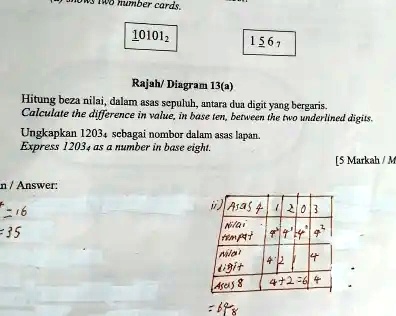 shows two number cards.
10101₂
156₇
Rajah/ Diagram 13(a)
Hitung beza nilai, dalam asas sepuluh, antara dua digit yang bergaris.
Calculate the difference in value, in base ten, between the two underlined digits.
Ungkapkan 1203₄ sebagai nombor dalam asas lapan.
Express 1203₄ as a number in base eight.
[5 Markah / M
n / Answer:
= 16
= 35
ii) Asas 4 1 2 0 3
Nilai
tempat
Nilai
digit 4 2 1 4
Asas 8 4+2=6 4
= 64₈